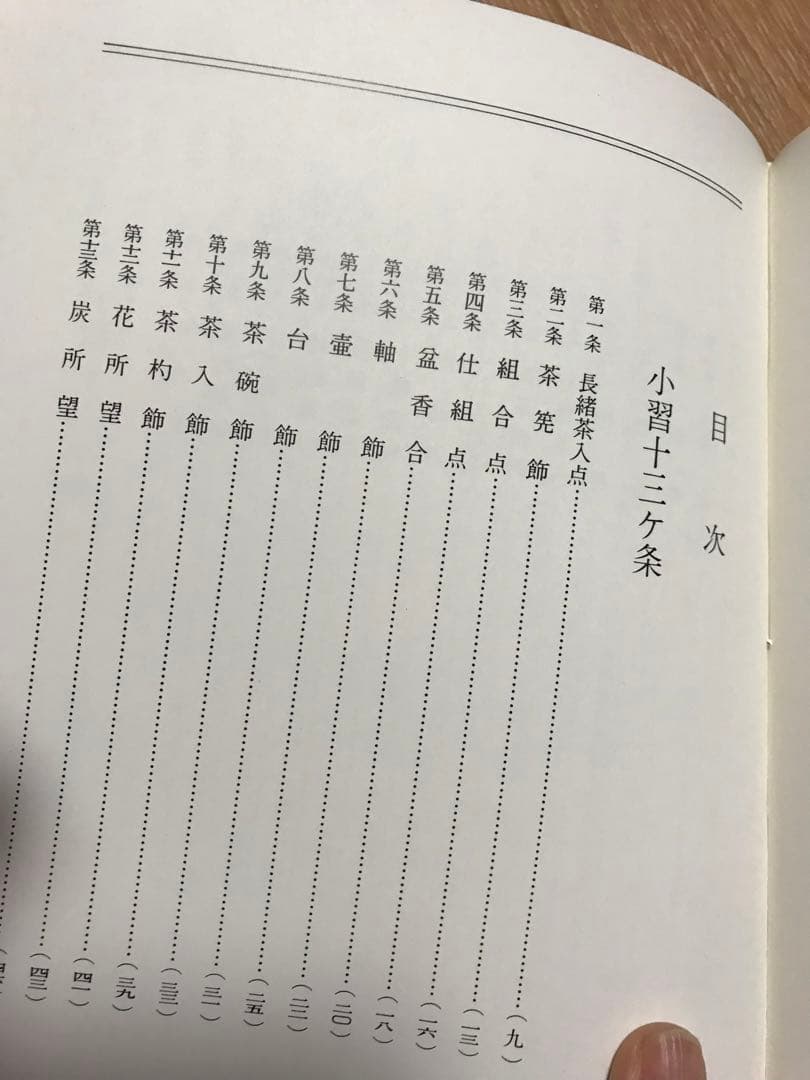 目次
小習十三ケ条
第一条 長緒茶入点……(九)
第二条 茶筅飾……(一三)
第三条 組合点……(一六)
第四条 仕組点……(一八)
第五条 盆香合……(二〇)
第六条 軸飾……(二二)
第七条 壷飾……(二五)
第八条 台飾……(三一)
第九条 茶碗飾……(三三)
第十条 茶入飾……(三九)
第十一条 茶杓飾……(四一)
第十二条 花所望……(四三)
第十三条 炭所望……